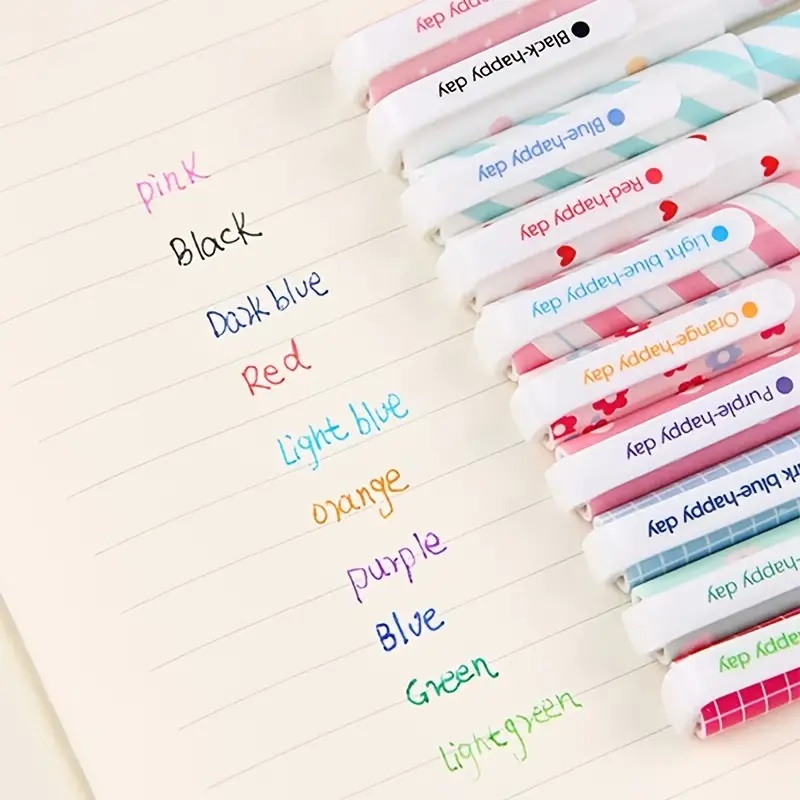 pink
Black
Dark blue
Red
Light blue
orange
purple
Blue
Green
Lightgreen
happy day
Black-happy day
Blue-happy day
Red-happy day
Light blue-happy day
Orange-happy day
Purple-happy day
blue-happy day
happy day
happy day